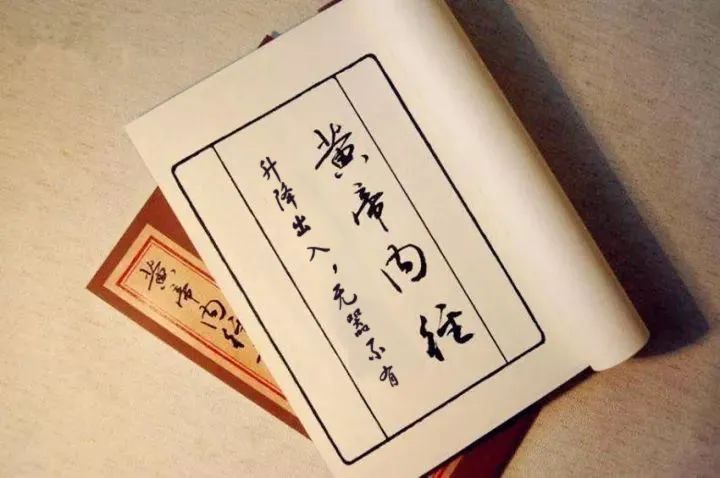 黄帝内经
升降出入，无器不有
黄帝内经